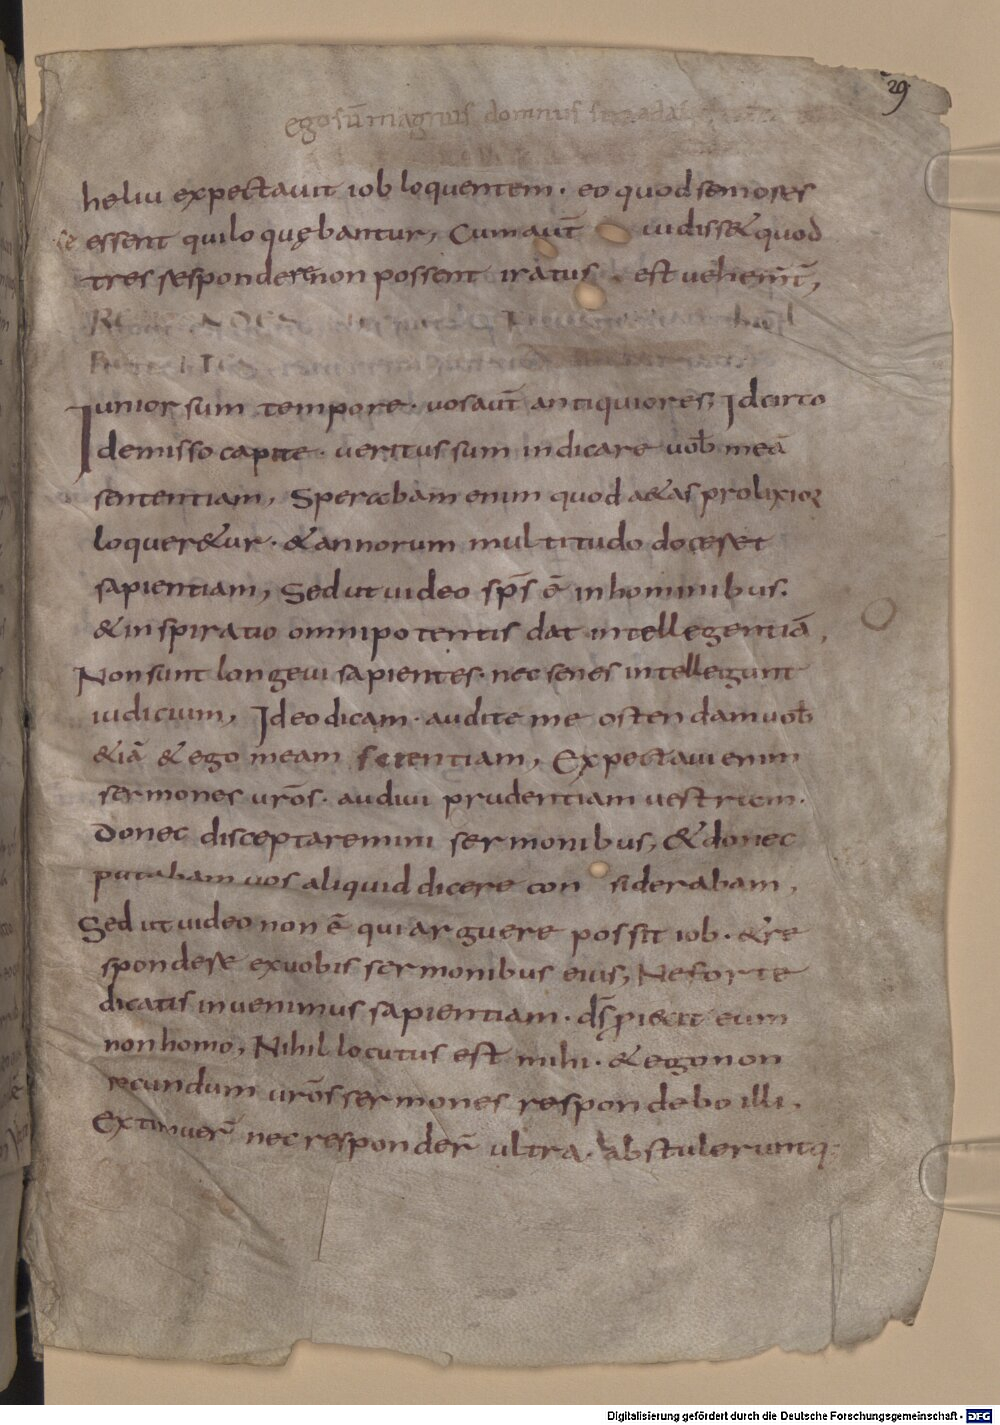 29
egosū magnus domnus
heliu expectauit iob loquentem · eo quod seniores
se essent qui loquębantur, Cum aut̄ uidiss& quod
tres respondere non possent iratus est uehem̄t̄,
Iunior sum tempore · uos aut̄ antiquiores, Idcirco
demisso capite · ueritus sum indicare uob̄ meā
sententiam, Sperabam enim quod a&as prolixior
loquer&ur · & annorum multitudo doceret
sapientiam, Sed ut uideo sp̄s ē in hominibus.
& inspiratio omnipotentis dat intellegentiā,
Non sunt longeui sapientes · nec senes intellegunt
iudicium, Ideo dicam · audite me ostendam uob̄
&iā & ego meam scientiam, Expectaui enim
sermones ur̄os · audiui prudentiam uestram ·
Donec disceptaremini sermonibus, & donec
putabam uos aliquid dicere con siderabam,
Sed ut uideo non ē qui arguere possit iob · & re
spondere ex uobis sermonibus eius, Ne forte
dicatis inuenimus sapientiam · d̄s ꝓiecit eum
non homo, Nihil locutus est mihi · & ego non
secundum ur̄os sermones respondebo illi,
Extimuer̄ nec responder̄ ultra · abstuleruntq;
Digitalisierung gefördert durch die Deutsche Forschungsgemeinschaft - DFG